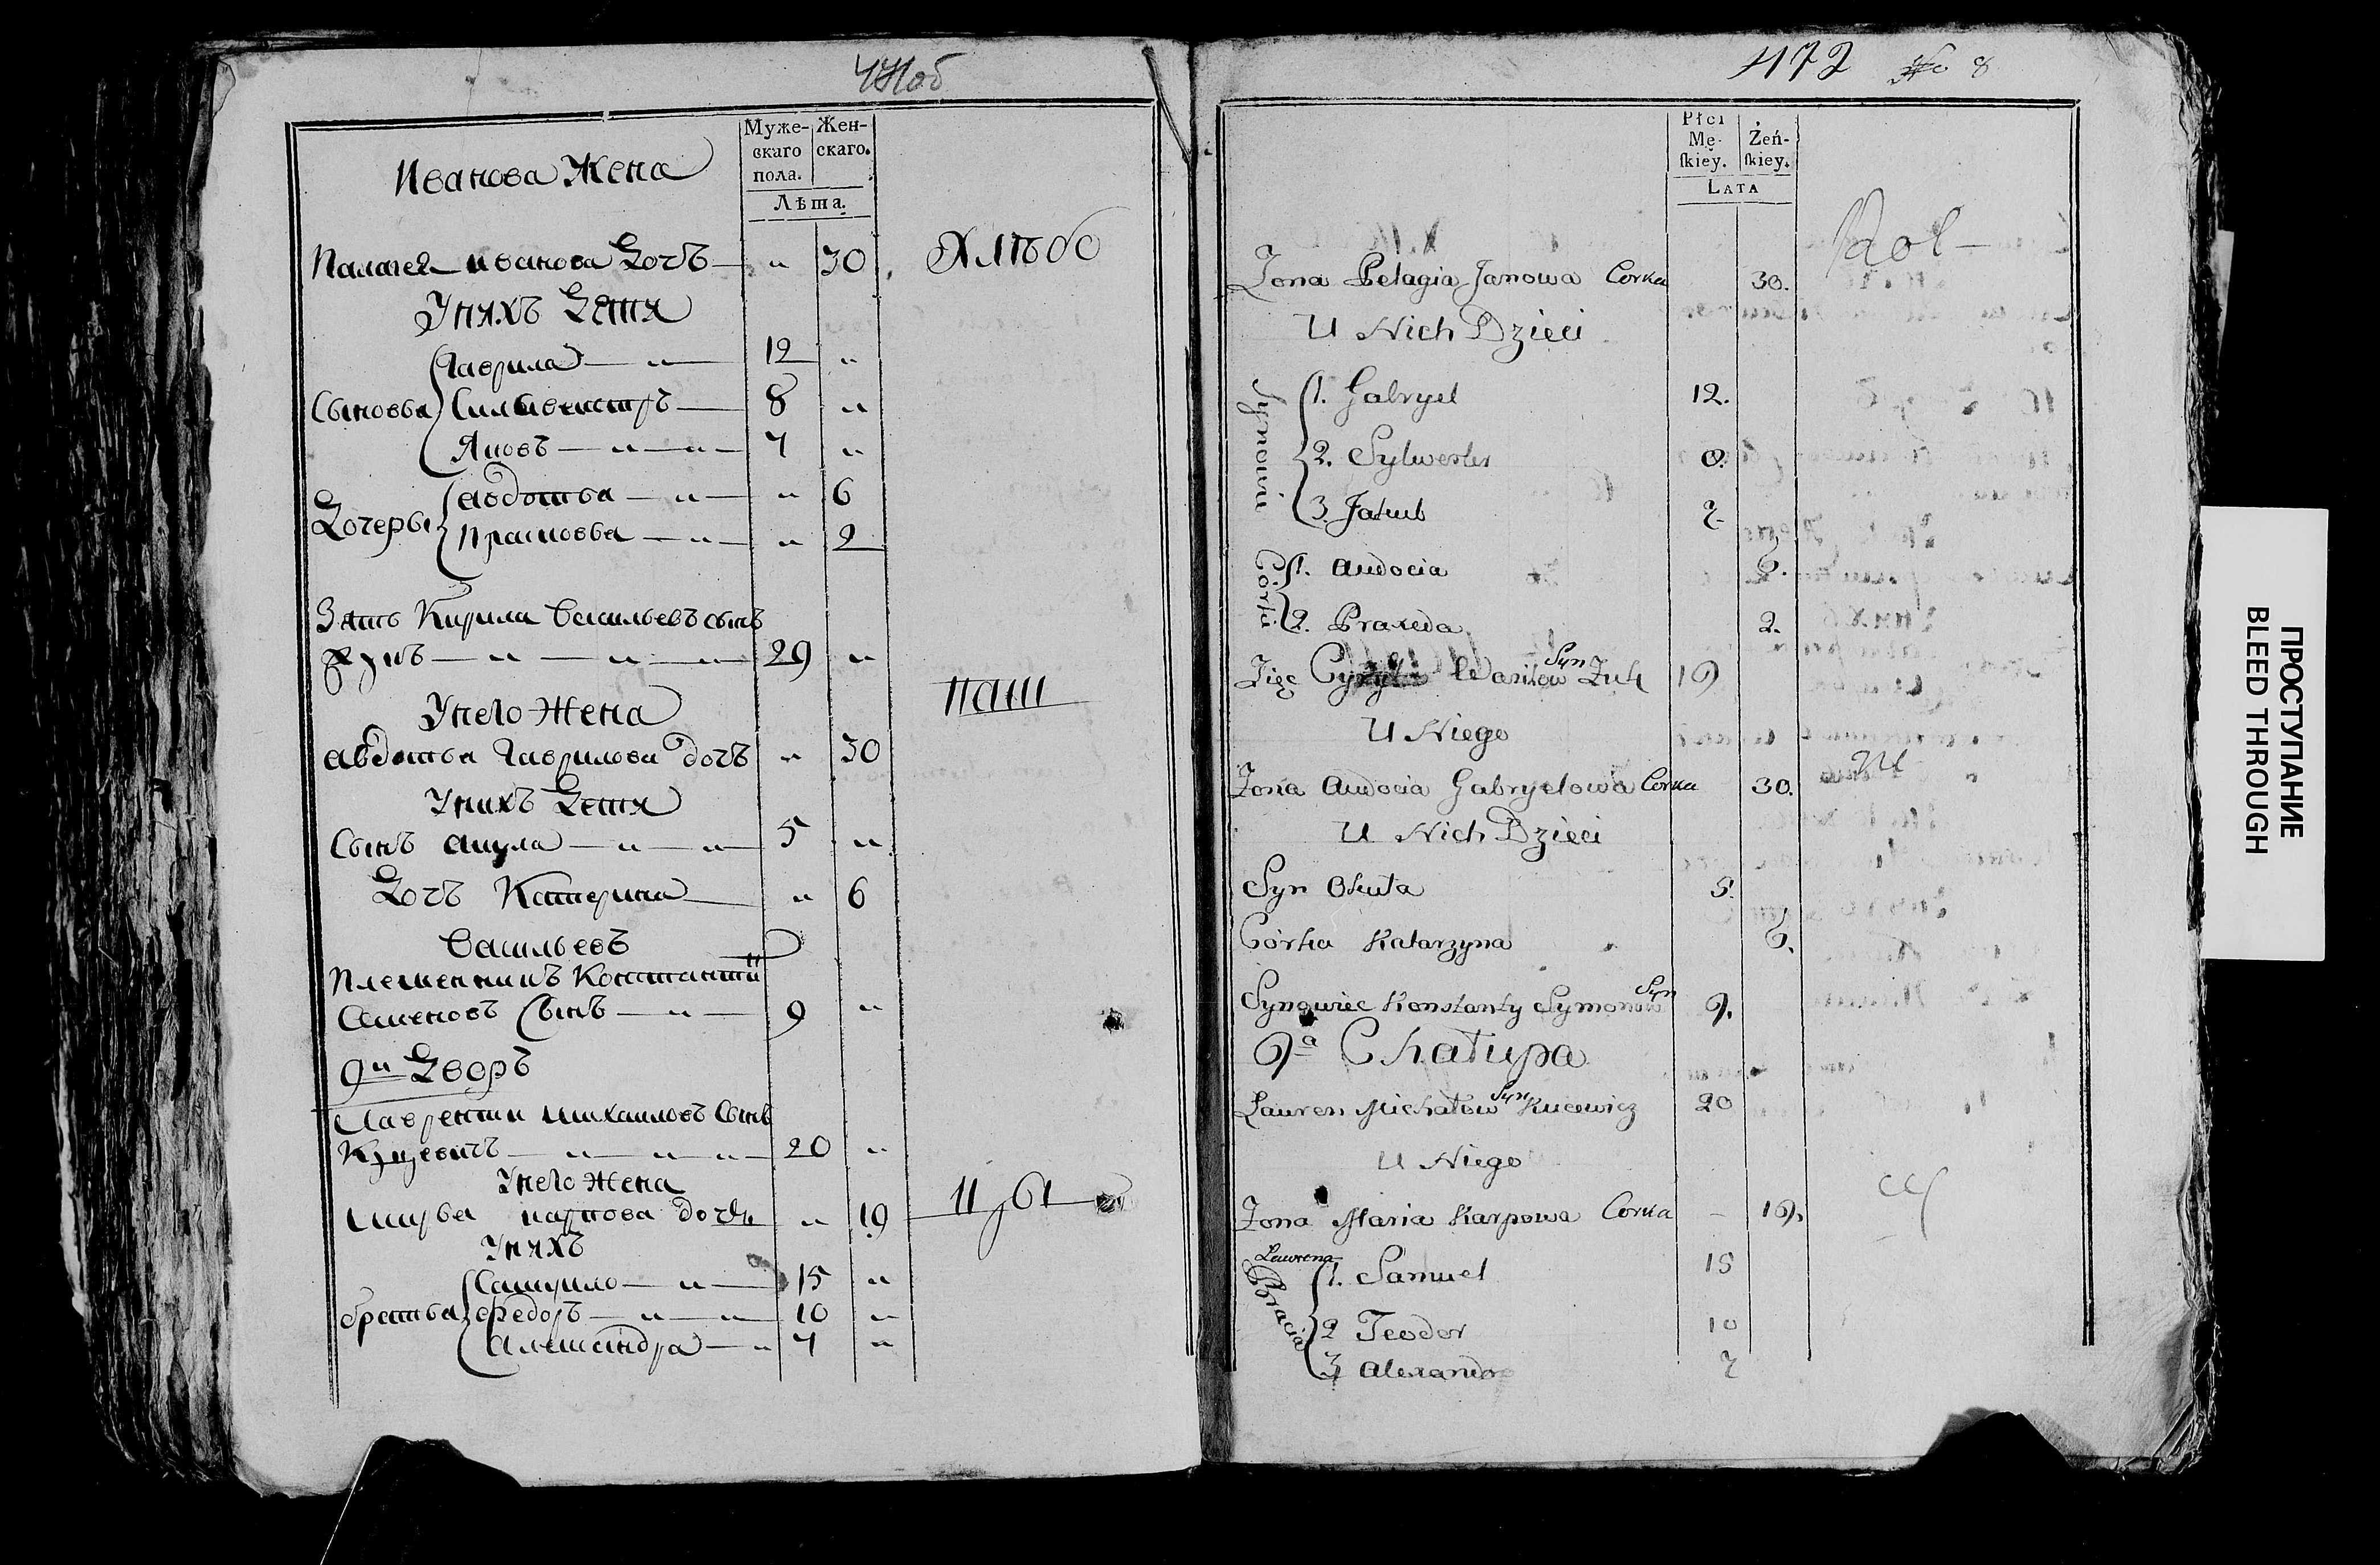 471об
Муже-
скаго
пола.
Жен-
скаго.
Лѣта.
Иванова Жена
Палагея Иванова Дочь — " 30
Унихъ Дети
Сыновья
Гаврила — " — 12 "
Сильвестръ — 8 "
Яковъ — " — " — 7 "
Дочерьи
авдотья — " — " 6
Прасковья — " — " 2
Зять Кирила Васильевъ сынъ
— " — " — " 29 "
Унего Жена
авдотья Гаврилова дочь " 30
Унихъ Дети
Сынъ акула — " — " 5 "
Дочь Катерина — " 6
Васильевъ
Племенникъ Константiй
Семеновъ Сынъ — " — 9 "
9й Дворъ
Лаврентий михаиловъ Сынъ
Куцевичъ — " — " — " 20 "
Унего Жена
марья карпова дочь " 19
Унихъ
братья
Самуило — " — 15 "
Федоръ — " — " 10 "
Александра — " 7 "
472 No 8
Płci
Mę-
skiey.
Żeń-
skiey.
Lata
Żona Pelagia Janowa Corka 30.
U Nich Dzieci
Synowi
1. Gabryel 12.
2. Sylwester 8.
3. Jakub 7
Córki
1. Audocia 6.
2. Praxeda 2.
Zięć Cyryl Wasilow Syn Zuk 19
U Niego
Żona Audocia Gabryelowa Corka 30.
U Nich Dzieci
Syn Okuła 5.
Córka Katarzyna 6.
Synowiec Konstanty Symonow Syn 9.
9a Chałupa
Lauren Michałow Syn Kucewicz 20
U Niego
Żona Maria Karpowa Corka – 19.
Laurena
Bracia
1. Samuel 15
2 Teodor 10
3 Alexandr 7
ПРОСТУПАНИЕ
BLEED THROUGH